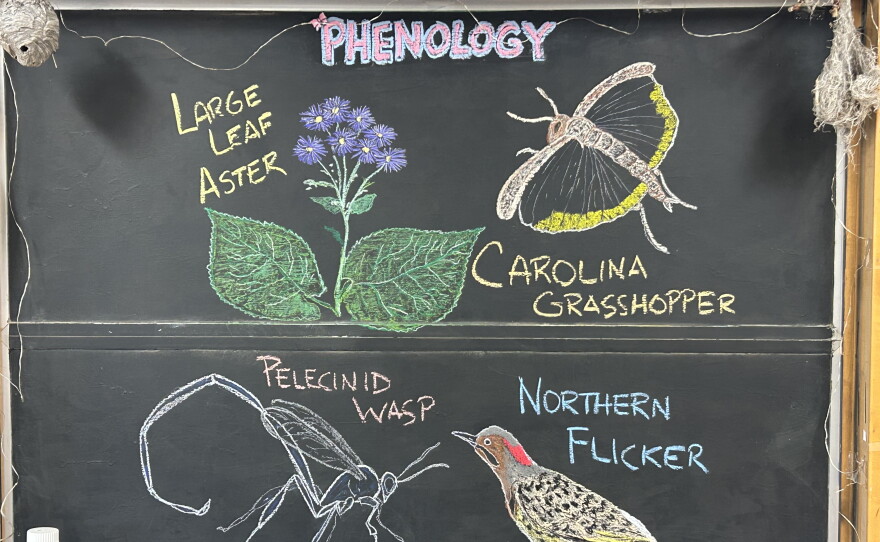 PHENOLOGY
LARGE
LEAF
ASTER
CAROLINA
GRASSHOPPER
PELECINID
WASP
NORTHERN
FLICKER